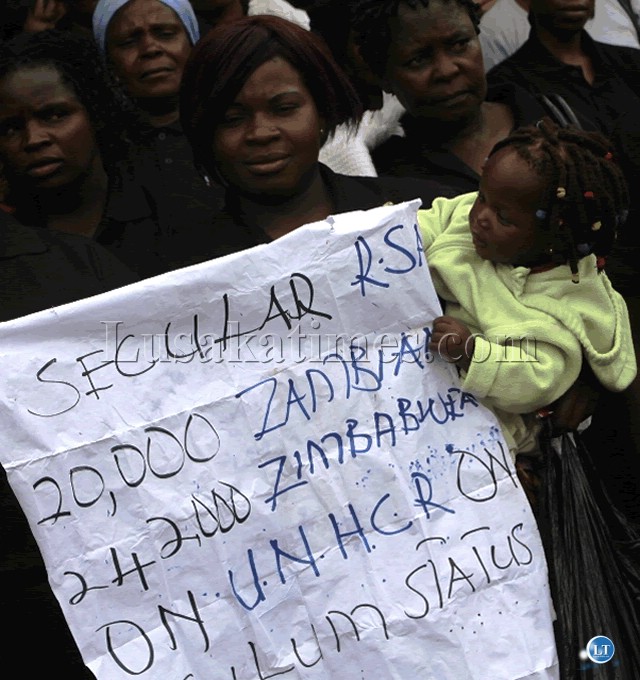 SECULAR R.SA
20,000 ZAMBIAN
242,000 ZIMBABWEA
ON U.N.H.C.R ON
LUM STATUS
Lusakatimes.com
LT